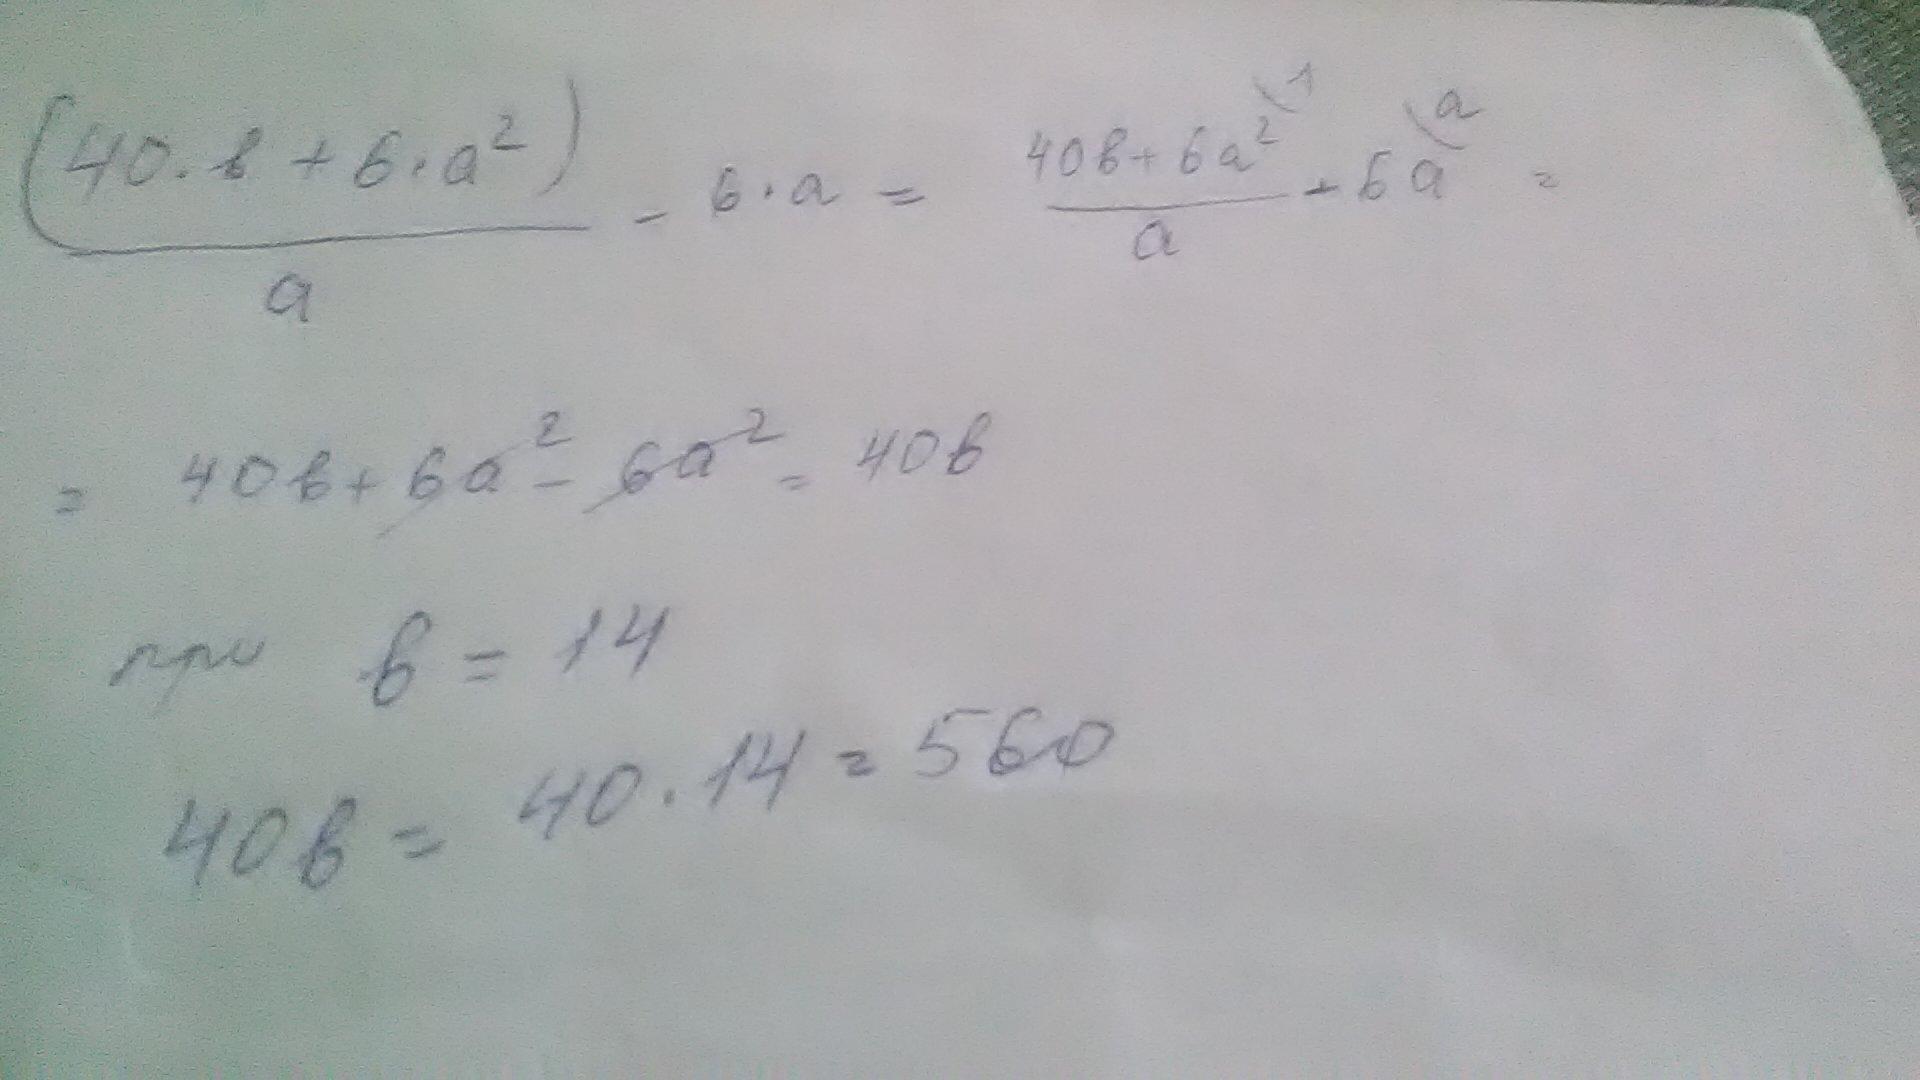 (40·в+6·a²)/a - 6·a = (40в+6a²\1)/a - 6a\a =
= 40в+6a²-6a² = 40в
при в = 14
40в = 40·14=560